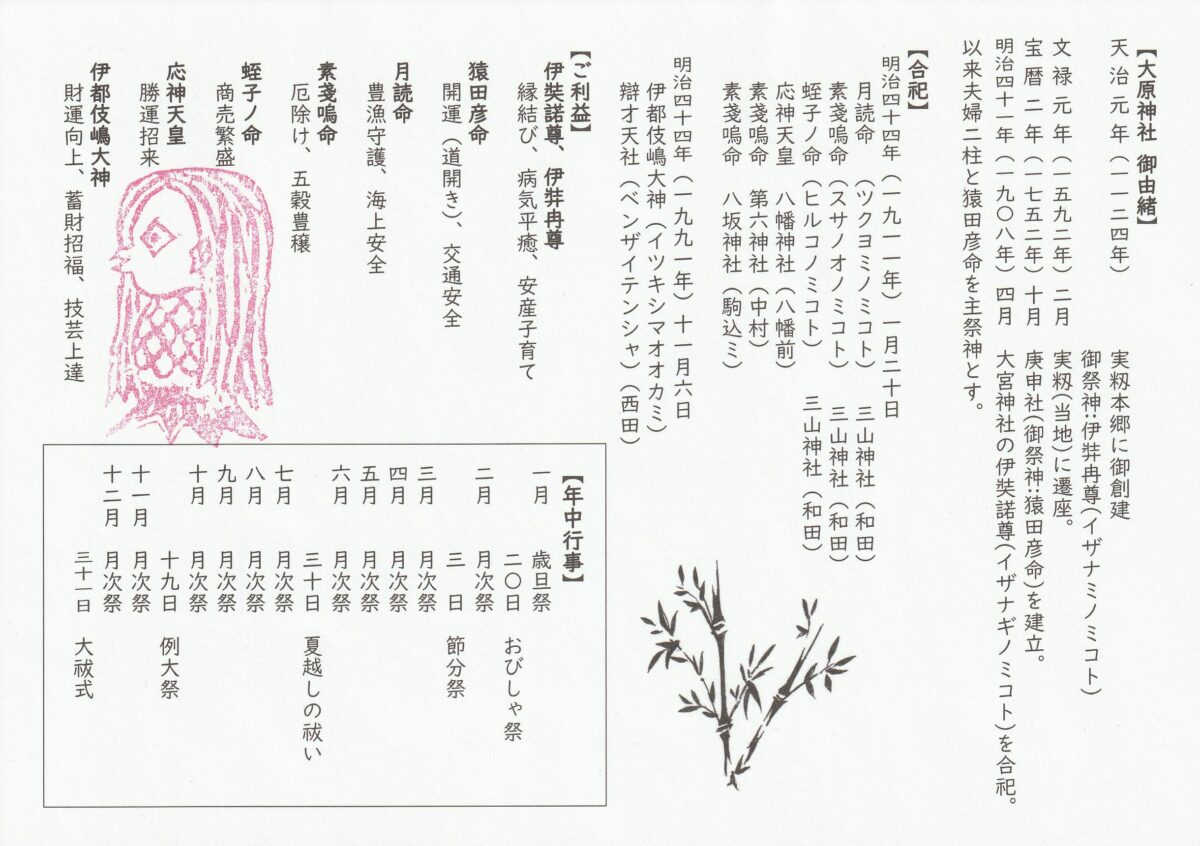 【大原神社 御由緒】
天治元年(一一二四年) 実籾本郷に御創建
御祭神:伊弉冉尊(イザナミノミコト)
文禄元年(一五九二年)二月 実籾(当地)に遷座。
宝暦二年(一七五二年)十月 庚申社(御祭神:猿田彦命)を建立。
明治四十一年(一九〇八年)四月 大宮神社の伊奘諾尊(イザナギノミコト)を合祀。
以来夫婦二柱と猿田彦命を主祭神とす。
【合祀】
明治四十四年(一九一一年)一月二十日
月読命(ツクヨミノミコト) 三山神社(和田)
素戔嗚命(スサノオノミコト) 三山神社(和田)
蛭子ノ命(ヒルコノミコト) 三山神社(和田)
応神天皇 八幡神社(八幡前)
素戔嗚命 第六神社(中村)
素戔嗚命 八坂神社(駒込ミ)
明治四十四年(一九九一年)十一月六日
伊都伎嶋大神(イツキシマオオカミ)
辯才天社(ベンザイテンシャ)(西田)
【ご利益】
伊奘諾尊、伊弉冉尊
縁結び、病気平癒、安産子育て
猿田彦命
開運(道開き)、交通安全
月読命
豊漁守護、海上安全
素戔嗚命
厄除け、五穀豊穣
蛭子ノ命
商売繁盛
応神天皇
勝運招来
伊都伎嶋大神
財運向上、蓄財招福、技芸上達
【年中行事】
一月 歳旦祭
二〇日 おびしゃ祭
二月 月次祭
三日 節分祭
三月 月次祭
四月 月次祭
五月 月次祭
六月 月次祭
三十日 夏越しの祓い
七月 月次祭
八月 月次祭
九月 月次祭
十月 月次祭
十九日 例大祭
十一月 月次祭
十二月 月次祭
三十一日 大祓式